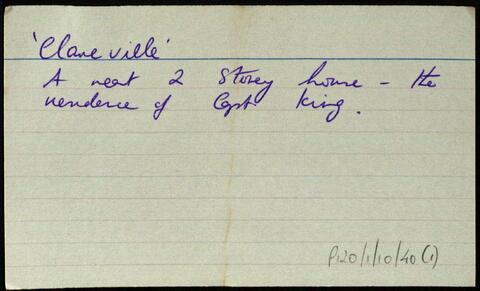 'Clare ville'
A neat 2 Storey house - the
residence of Capt King.
P120/1/10/40(1)